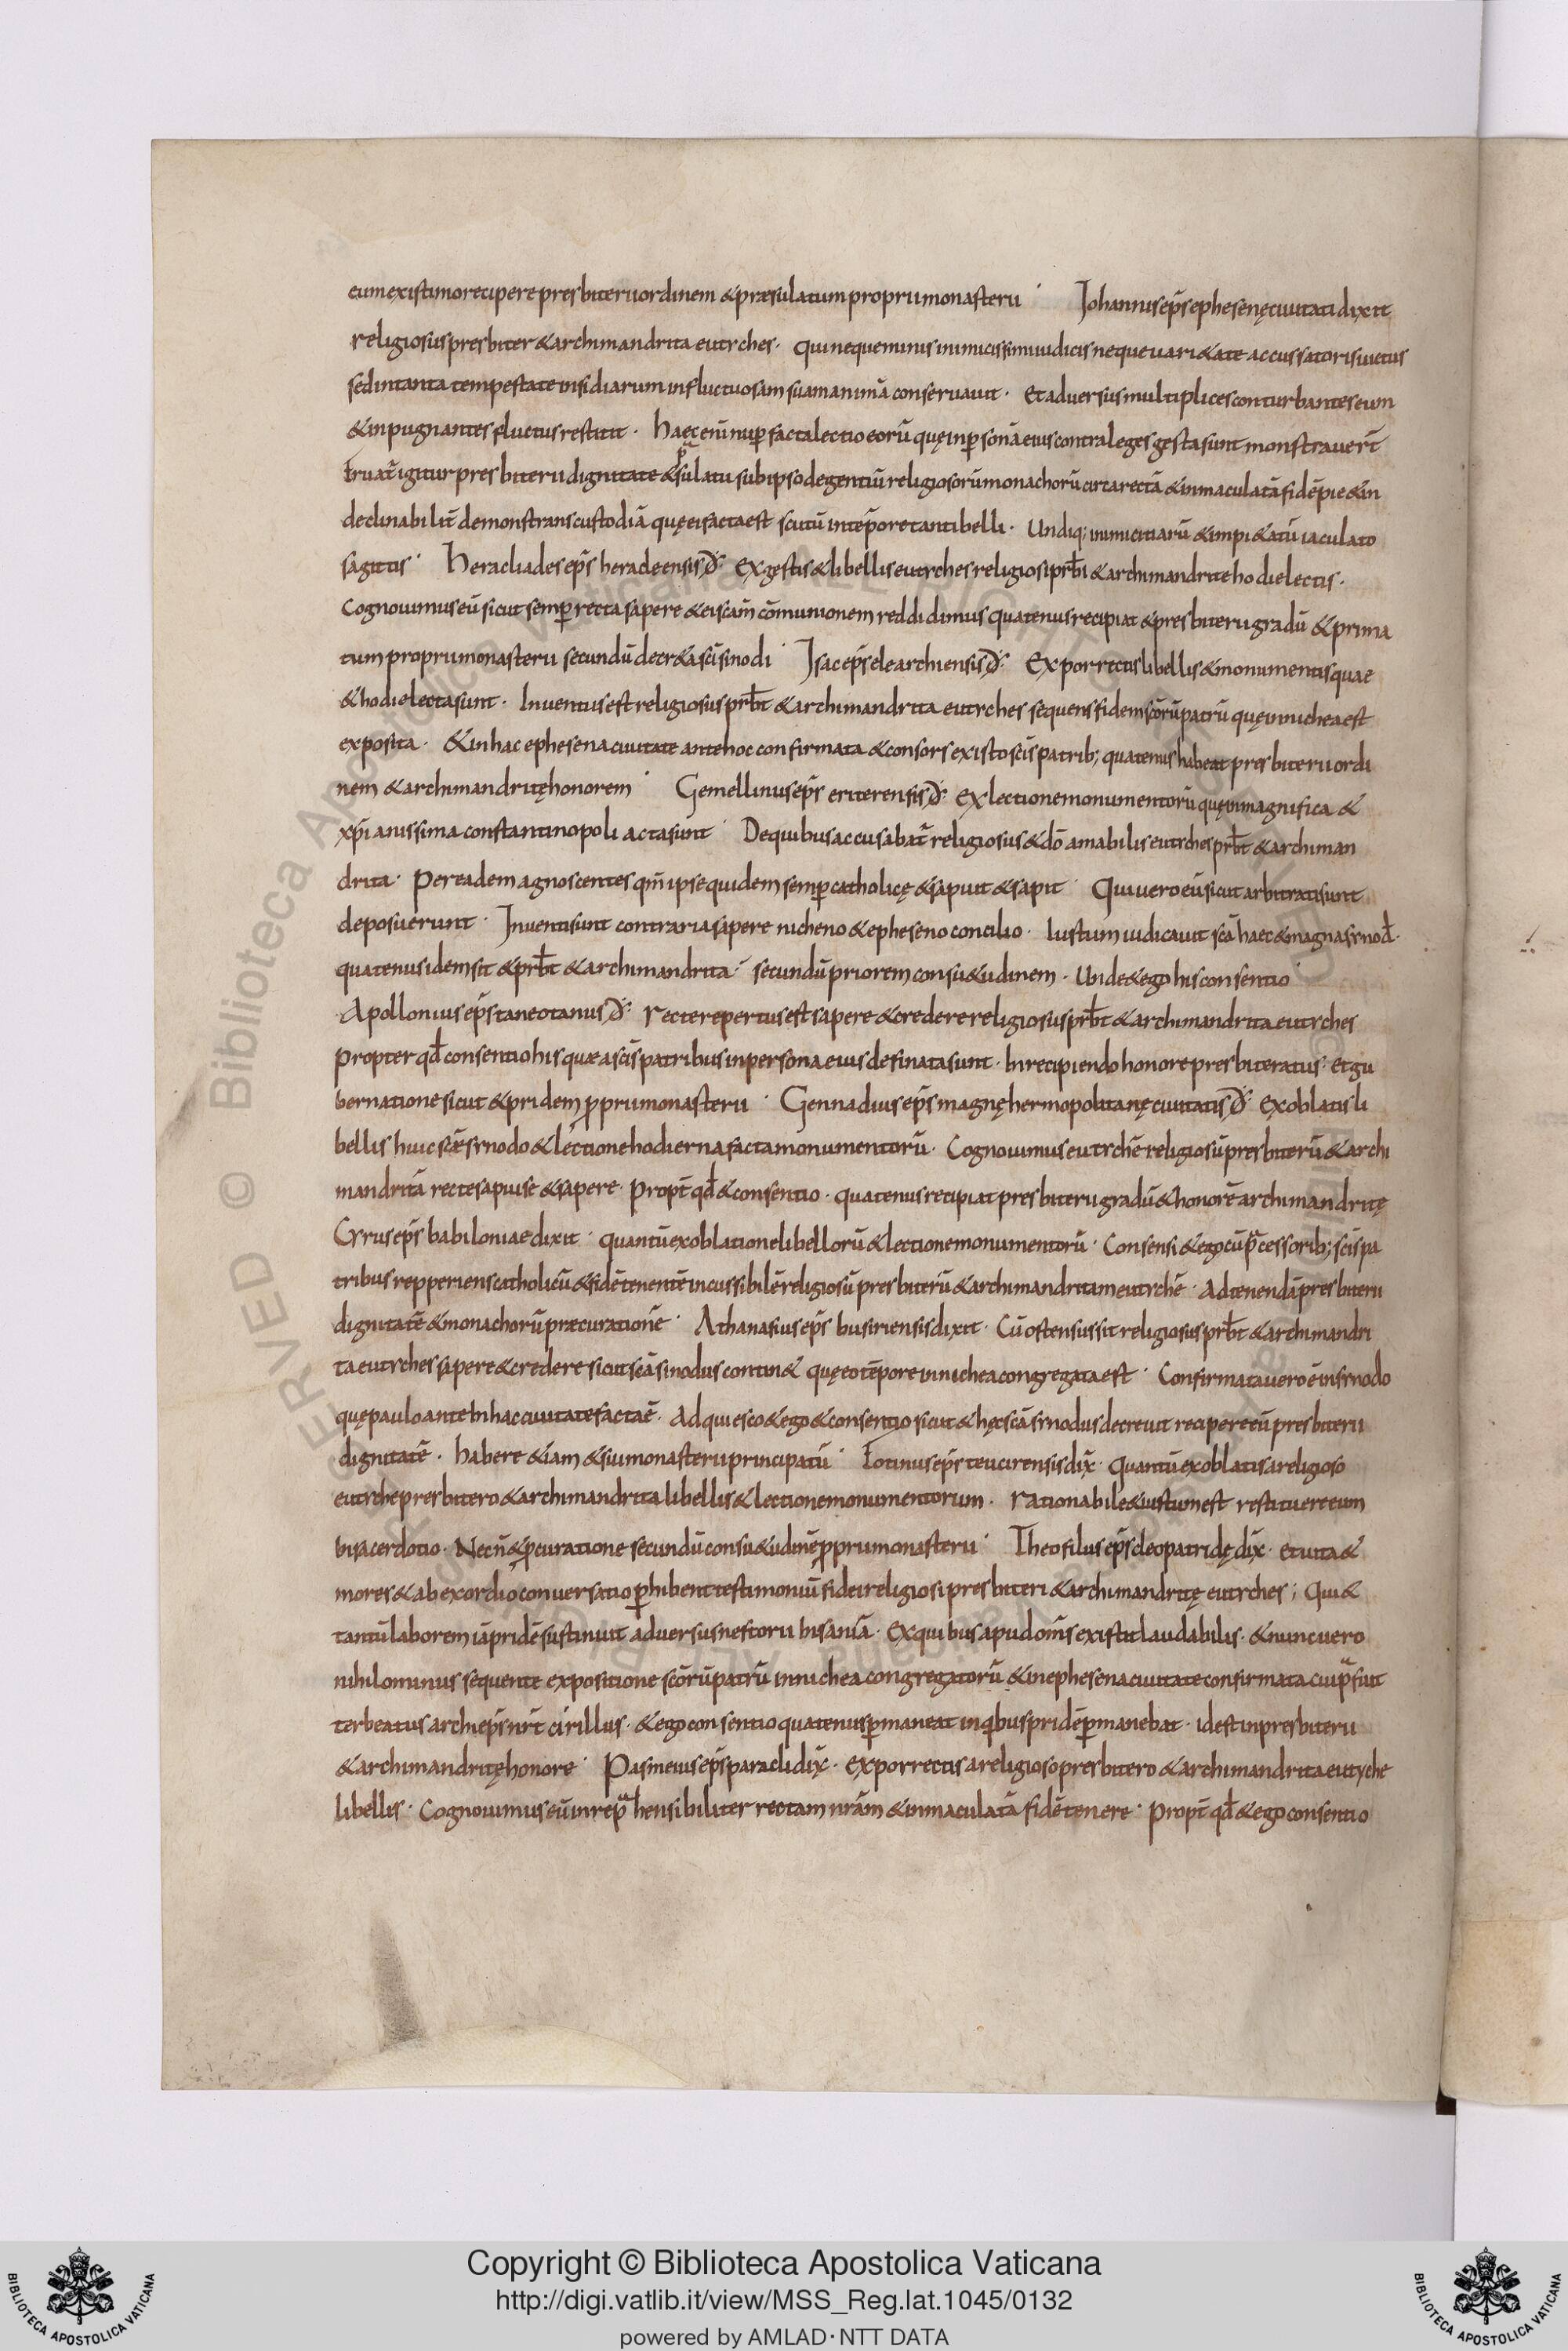 eum existimo recipere presbiterii ordinem & præsulatum proprii monasterii · Johannis ep̄s ephesenę ciuitati dixit
religiosus presbiter & archimandrita eutrches · qui neque minis inimicissimi iudicis neque uari&ate accussatoris iuctus
sed in tanta tempestate insidiarum influctuosam suam animā conseruauit · Et aduersus multiplices conturbantes eum
& inpugnantes fluctus restitit · haęc enī nup̄ facta lectio eorū quę in p̄sonā eius contra leges gesta sunt monstrauer̄t
fruat̄ igitur presbiterii dignitate & p̄sulatu sub ipso degentiū religiosorū monachorū circa rectā & inmaculatā fidē pie & in
declinabilit̄ demonstrans custodiā quę ei facta est scutū in tēpore tanti belli · Undiq; inimicitiarū & impi&atū iaculato
sagittis · Heracliades ep̄s heracleensis d̄· Ex gestis & libellis eutrches religiosi prb̄i & archimandrite hodie lectis ·
Cognouimus eū sicut semp̄ recta sapere & ei scām cōmunionem reddidimus quatenus recipiat & presbiterii gradū & prima
tum proprii monasterii secundū decr&a scī sinodi · Jsac ep̄s elearchiensis d̄· Ex porrectis libellis & monumentis quae
& hodie lecta sunt · Inuentus est religiosus prb̄t & archimandrita eutrches sequens fidem scōrū patrū quę in nichea est
exposita · & in hac ephesena ciuitate ante hoc confirmata & consors existo scīs patrib; quatenus habeat presbiterii ordi
nem & archimandritę honorem · Gemellinus ep̄s eriterensis d̄· ex lectione monumentorū quę in magnifica &
xp̄ianissima constantinopoli acta sunt · De quibus accusabat̄ religiosus & dō amabilis eutrches prb̄t & archiman
drita · Per eadem agnoscentes qm̄ ipse quidem semp̄ catholicę & sapuit & sapit · Qui uero eū sicut arbitrati sunt
deposuerunt · Jnuenti sunt contraria sapere nicheno & epheseno concilio · Iustum iudicauit scā haec & magna srnod̄ ·
quatenus idem sit & prb̄t & archimandrita · secundū priorem consu&udinem · Unde & ego his consentio
Apollonius ep̄s taneotanus d̄· recte repertus est sapere & credere religiosus prb̄t & archimandrita eutrches
propter qd̄ consentio his quæ a scīs patribus in persona eius definata sunt · In recipiendo honore presbiteratus · et gu
bernatione sicut & pridem p̄prii monasterii · Gennadius ep̄s magnę hermopolitanę ciuitatis d̄· ex oblatis li
bellis huic scē srnodo & lectione hodierna facta monumentorū · Cognouimus eutrchē religiosū presbiterū & archi
mandritā recte sapuise & sapere · Propt̄ qd̄ & consentio · quatenus recipiat presbiterii gradū & honorē archimandritę
Crrus ep̄s babiloniae dixit · quantū ex oblatione libellorū & lectione monumentorū · Consensi & ego cū p̄cessorib; scīs pa
tribus repperiens catholicū & fidē tenentē incussibilē religiosū presbiterū & archimandritam eutrchē · Ad tenendā presbiterii
dignitatē & monachorū præcurationē · Athanasius ep̄s busiriensis dixit · Cū ostensus sit religiosus prb̄t & archimandri
ta eutrches sapere & credere sicut scā sinodus contin& quę eo tēpore in nichea congregata est · Confirmata uero ē in srnodo
quę paulo ante in hac ciuitate facta ē · adquiesco & ego & consentio sicut & hęc scā srnodus decreuit recipere eū presbiterii
dignitatē · habere &iam & sui monasterii principatū · Fotinus ep̄s teucirensis dix̄ · quantū ex oblatis a religioso
eutrche presbitero & archimandrita libellis & lectione monumentorum · rationabile & iustum est restituere eum
in sacerdotio · Nec n̄ & p̄curatione secundū consu&udinē p̄prii monasterii · Theofilus ep̄s cleopatridę dix̄ · et uita &
mores & ab exordio conuersatio p̄hibent testimoniū fidei religiosi presbiteri & archimandritę eutrches ; Qui &
tantū laborem iā pridē sustinuit aduersus nestorii insaniā · Ex quibus apud om̄s existit laudabilis · & nunc uero
nihilominus sequente expositione scōrū patrū in nichea congregatorū & in ephesena ciuitate confirmata cui p̄fuit
ter beatus archiep̄s nr̄t cirillus · & ego consentio quatenus p̄maneat in q̄bus pridē p̄manebat · id est in presbiterii
& archimandritę honore · Pasmeius ep̄s paracli dix̄ · ex porrectis a religioso presbitero & archimandrita eutyche
libellis · Cognouimus eū inrep̄hensibiliter rectam nrām & inmaculatā fidē tenere · propt̄ qd̄ & ego consentio
Copyright © Biblioteca Apostolica Vaticana
http://digi.vatlib.it/view/MSS_Reg.lat.1045/0132
powered by AMLAD·NTT DATA
BIBLIOTECA APOSTOLICA VATICANA
BIBLIOTECA APOSTOLICA VATICANA